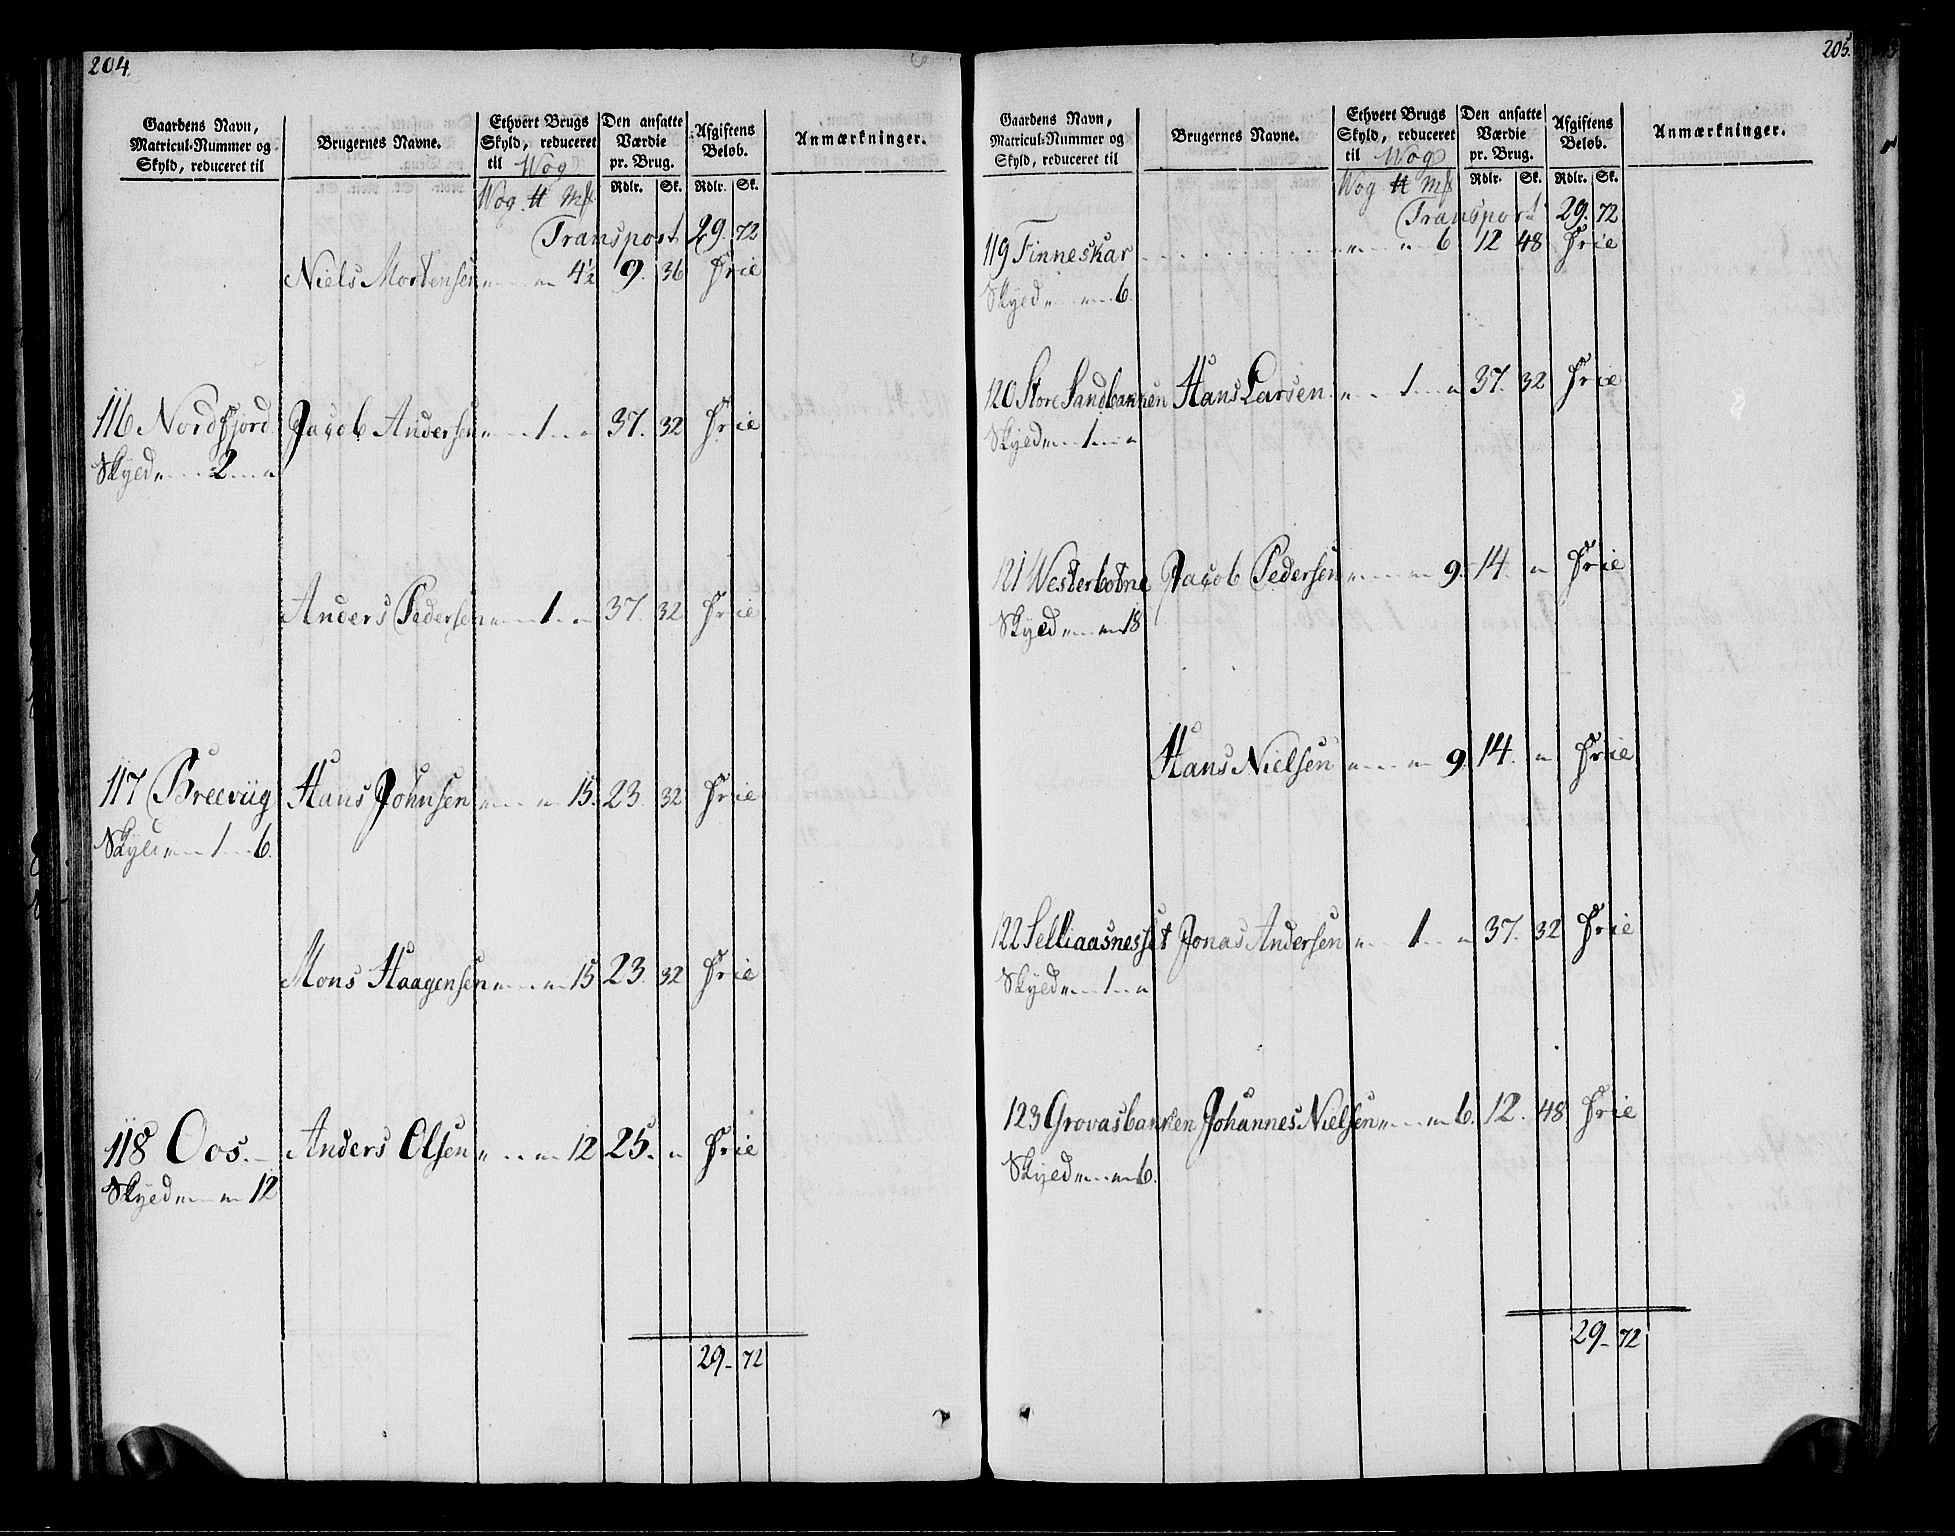 204
Gaardens Navn, Matricul-Nummer og Skyld, reduceret til
Brugernes Navne.
Ethvert Brugs Skyld, reduceret til Wog
Den ansatte Værdie pr. Brug.
Afgiftens Beløb.
Anmærkninger.
Wog. ℔ Mk Rdlr. Sk. Rdlr. Sk.
Transport 29. 72
Niels Mortensen " " 4½ 9. 36 Frie
116 Nordfjord Jacob Andersen " 1 " 37. 32 Frie
Skyld " 2 "
Anders Pedersen " 1 " 37. 32 Frie
117 Breeviig Hans Johnsen " " 15. 23. 32 Frie
Skyld " 1 " 6.
Mons Haagensen " " 15 23. 32 Frie
118 Oos. Anders Olsen " " 12 25. " Frie
Skyld " " 12
29 72
205.
Gaardens Navn, Matricul-Nummer og Skyld, reduceret til
Brugernes Navne.
Ethvert Brugs Skyld, reduceret til Wog
Den ansatte Værdie pr. Brug.
Afgiftens Beløb.
Anmærkninger.
Wog ℔ Mk Rdlr. Sk. Rdlr. Sk.
Transport 29. 72
119 Finneskar " " 6. 12 48 Frie
Skyld " " 6.
120 Store Sandbanken Hans Larsen " 1 " 37. 32 Frie
Skyld " 1 "
121 Westerbotne Jacob Pedersen " " 9. 14. " Frie
Skyld " " 18
Hans Nielsen " " 9. 14. " Frie
122 Selliaasnesset Jonas Andersen " 1 " 37. 32 Frie
Skyld " 1 "
123 Grovasbanken Johannes Nielsen " " 6. 12. 48 Frie
Skyld " " 6.
29 72